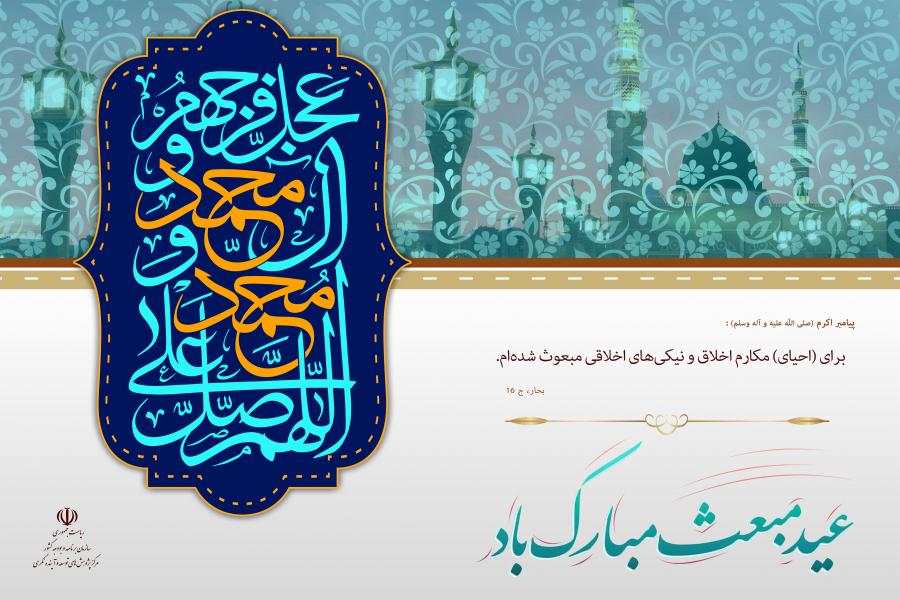 اللهم صل علی
محمد و
آل محمد و
عجل فرجهم
پیامبر اکرم (صلی الله علیه و آله وسلم) :
برای (احیای) مکارم اخلاق و نیکی‌های اخلاقی مبعوث شده‌ام.
بحار، ج 16
عید مبعث مبارک باد
ریاست جمهوری
سازمان برنامه و بودجه کشور
مرکز پژوهش‌های توسعه و آینده‌نگری